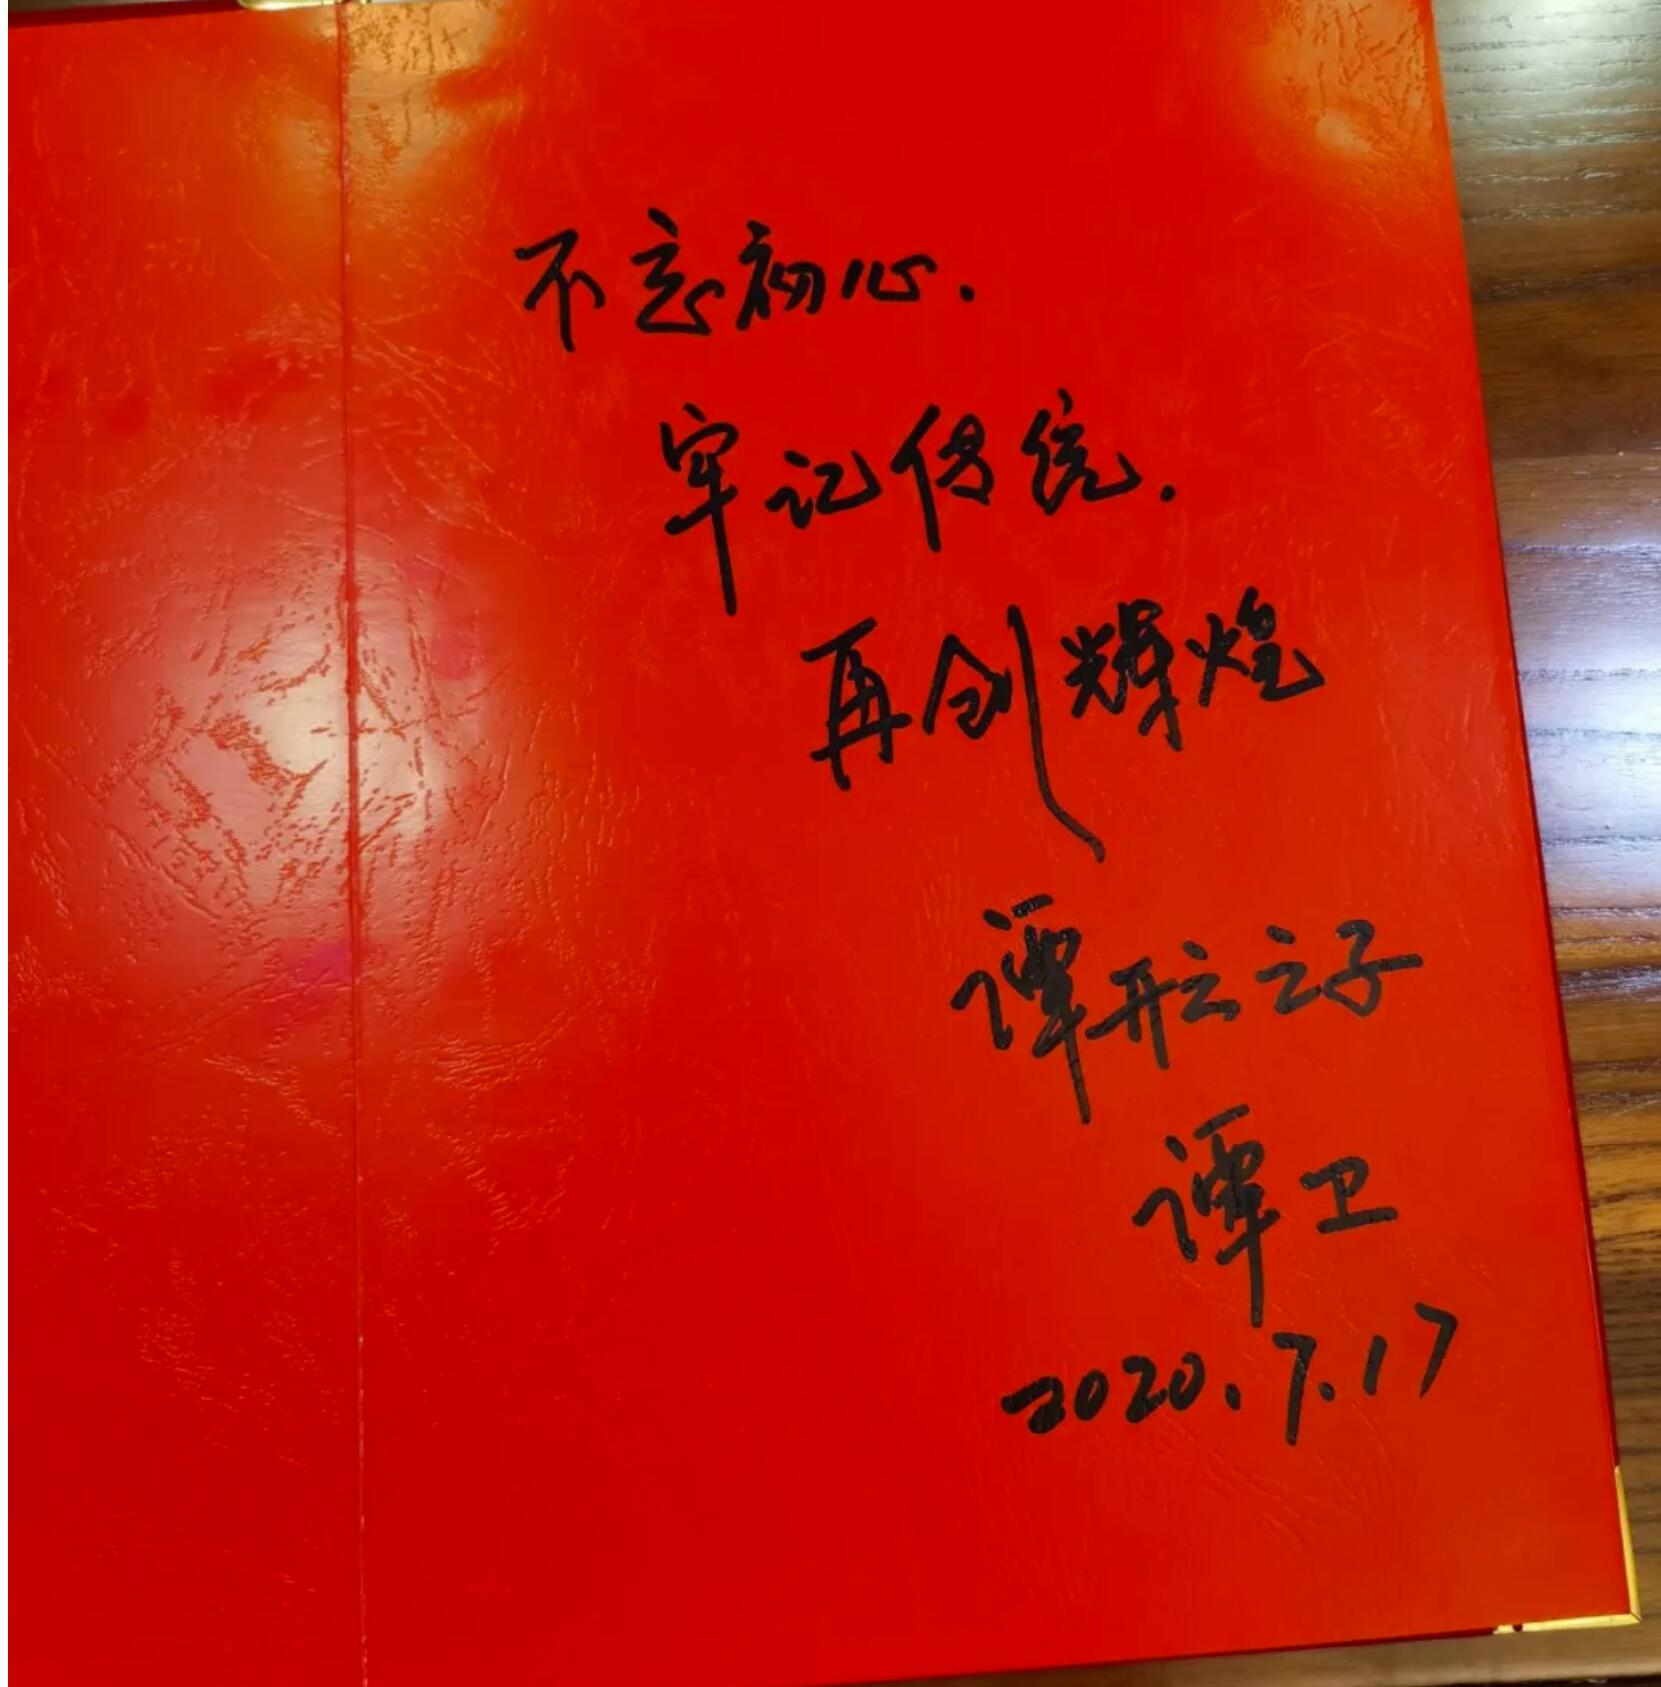 不忘初心.
牢记传统.
再创辉煌
谭形云之子
谭卫
2020.7.17